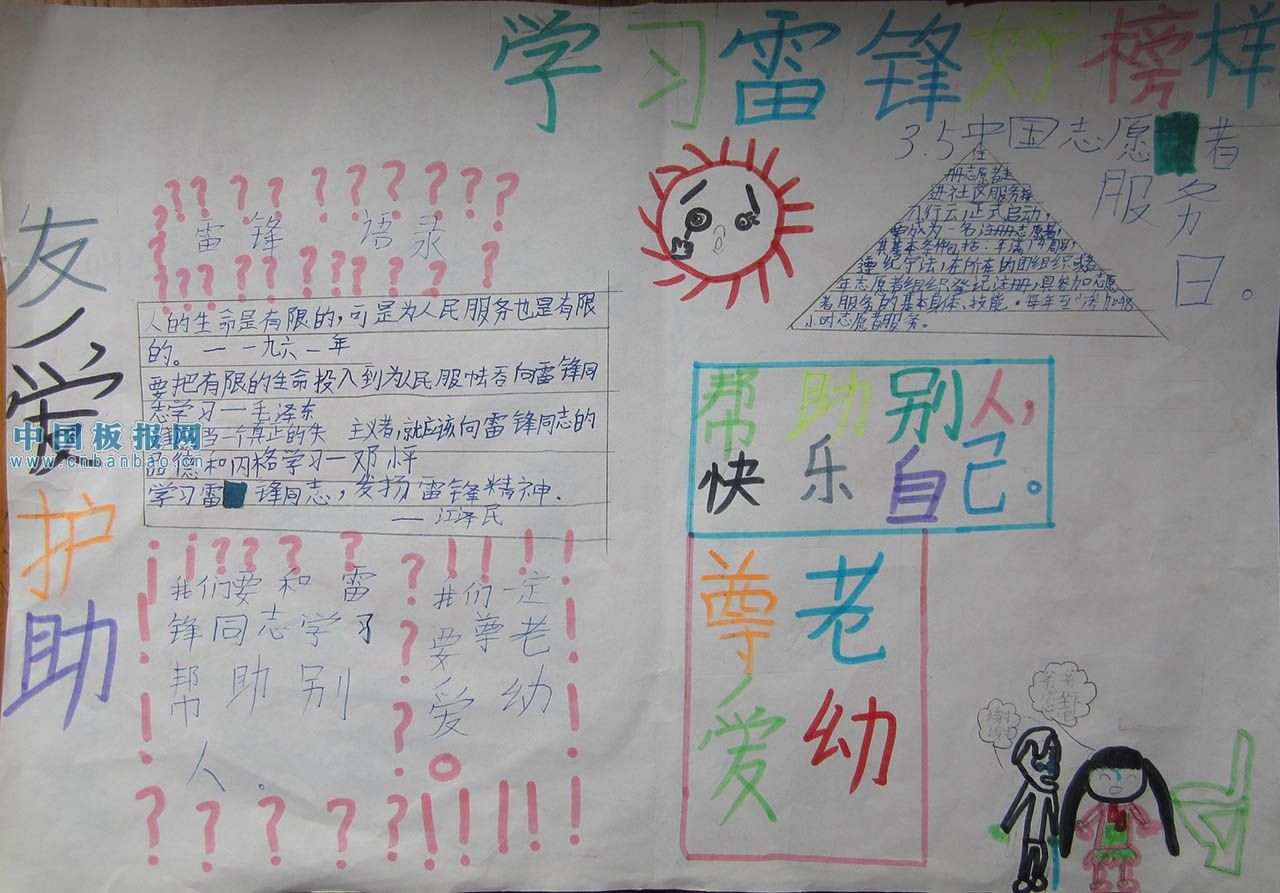 学习雷锋好榜样
3.5中国志愿者
服务日。
册志愿者
进社区服务
行云,正式启动,
要成为一名注册志愿者,
其基本条件包括:年满14周岁,
遵纪守法,在所在的团组织或者
年志愿者组织登记注册,具参加志愿
者服务的基本身体、技能。每年至少参加48
小时志愿者服务。
友爱护助
雷锋 语录
人的生命是有限的,可是为人民服务也是有限
的。——一九六一年
要把有限的生命投入到为人民服
向雷锋同
志学习—毛泽东
当一个真正的
主义者,就应该向雷锋同志的
品德和
格学习—邓
学习雷锋同志,发扬雷锋精神.
—江泽民
帮助别人,
快乐自己。
尊老
爱幼
我们要和雷
锋同志学习
帮助别
人。
我们一定
要尊老
爱幼
谢谢
爷爷
您坐下
吧
中国板报网
www.cnbanbao.